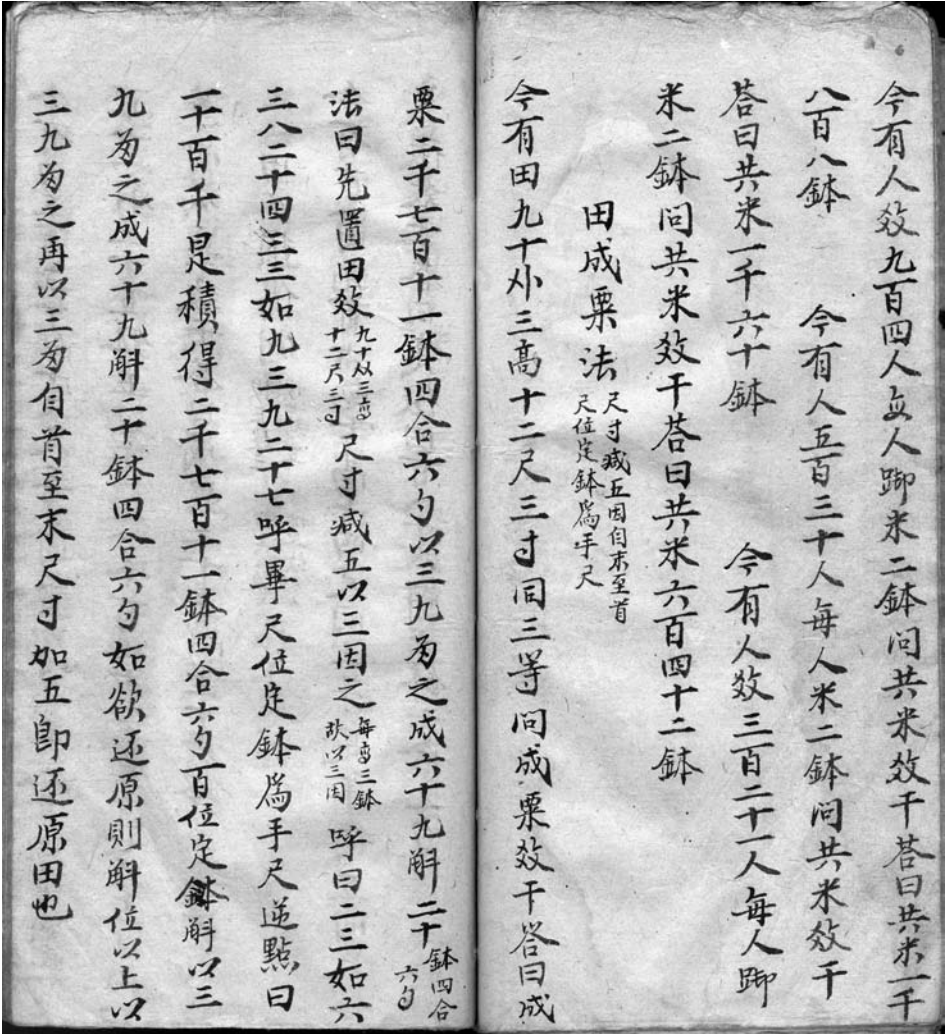 今有人效九百四人每人踋米二鉢問共米效干荅曰共米一千
八百八鉢　今有人五百三十人每人米二鉢问共米效干
荅曰共米一千六十鉢　今有人效三百二十一人每人踋
米二鉢問共米效干荅曰共米六百四十二鉢
田成粟法
尺寸减五因自末至首
尺位定鉢爲手尺
今有田九十三高十二尺三寸同三等問成粟效干答曰成
粟二千七百十一鉢四合六勺以三九为之成六十九斛二十
鉢四合
六勺
法曰先置田效
九十三高
十二尺三寸
尺寸减五以三因之
每高三鉢
故以三因
呼曰二三如六
三八二十四三三如九三九二十七呼畢尺位定鉢爲手尺逆點曰
一十百千是積得二千七百十一鉢四合六勺百位定鉢斛以三
九为之成六十九斛二十鉢四合六勺如欲还原則斛位以上以
三九为之再以三为自首至末尺寸加五即还原田也